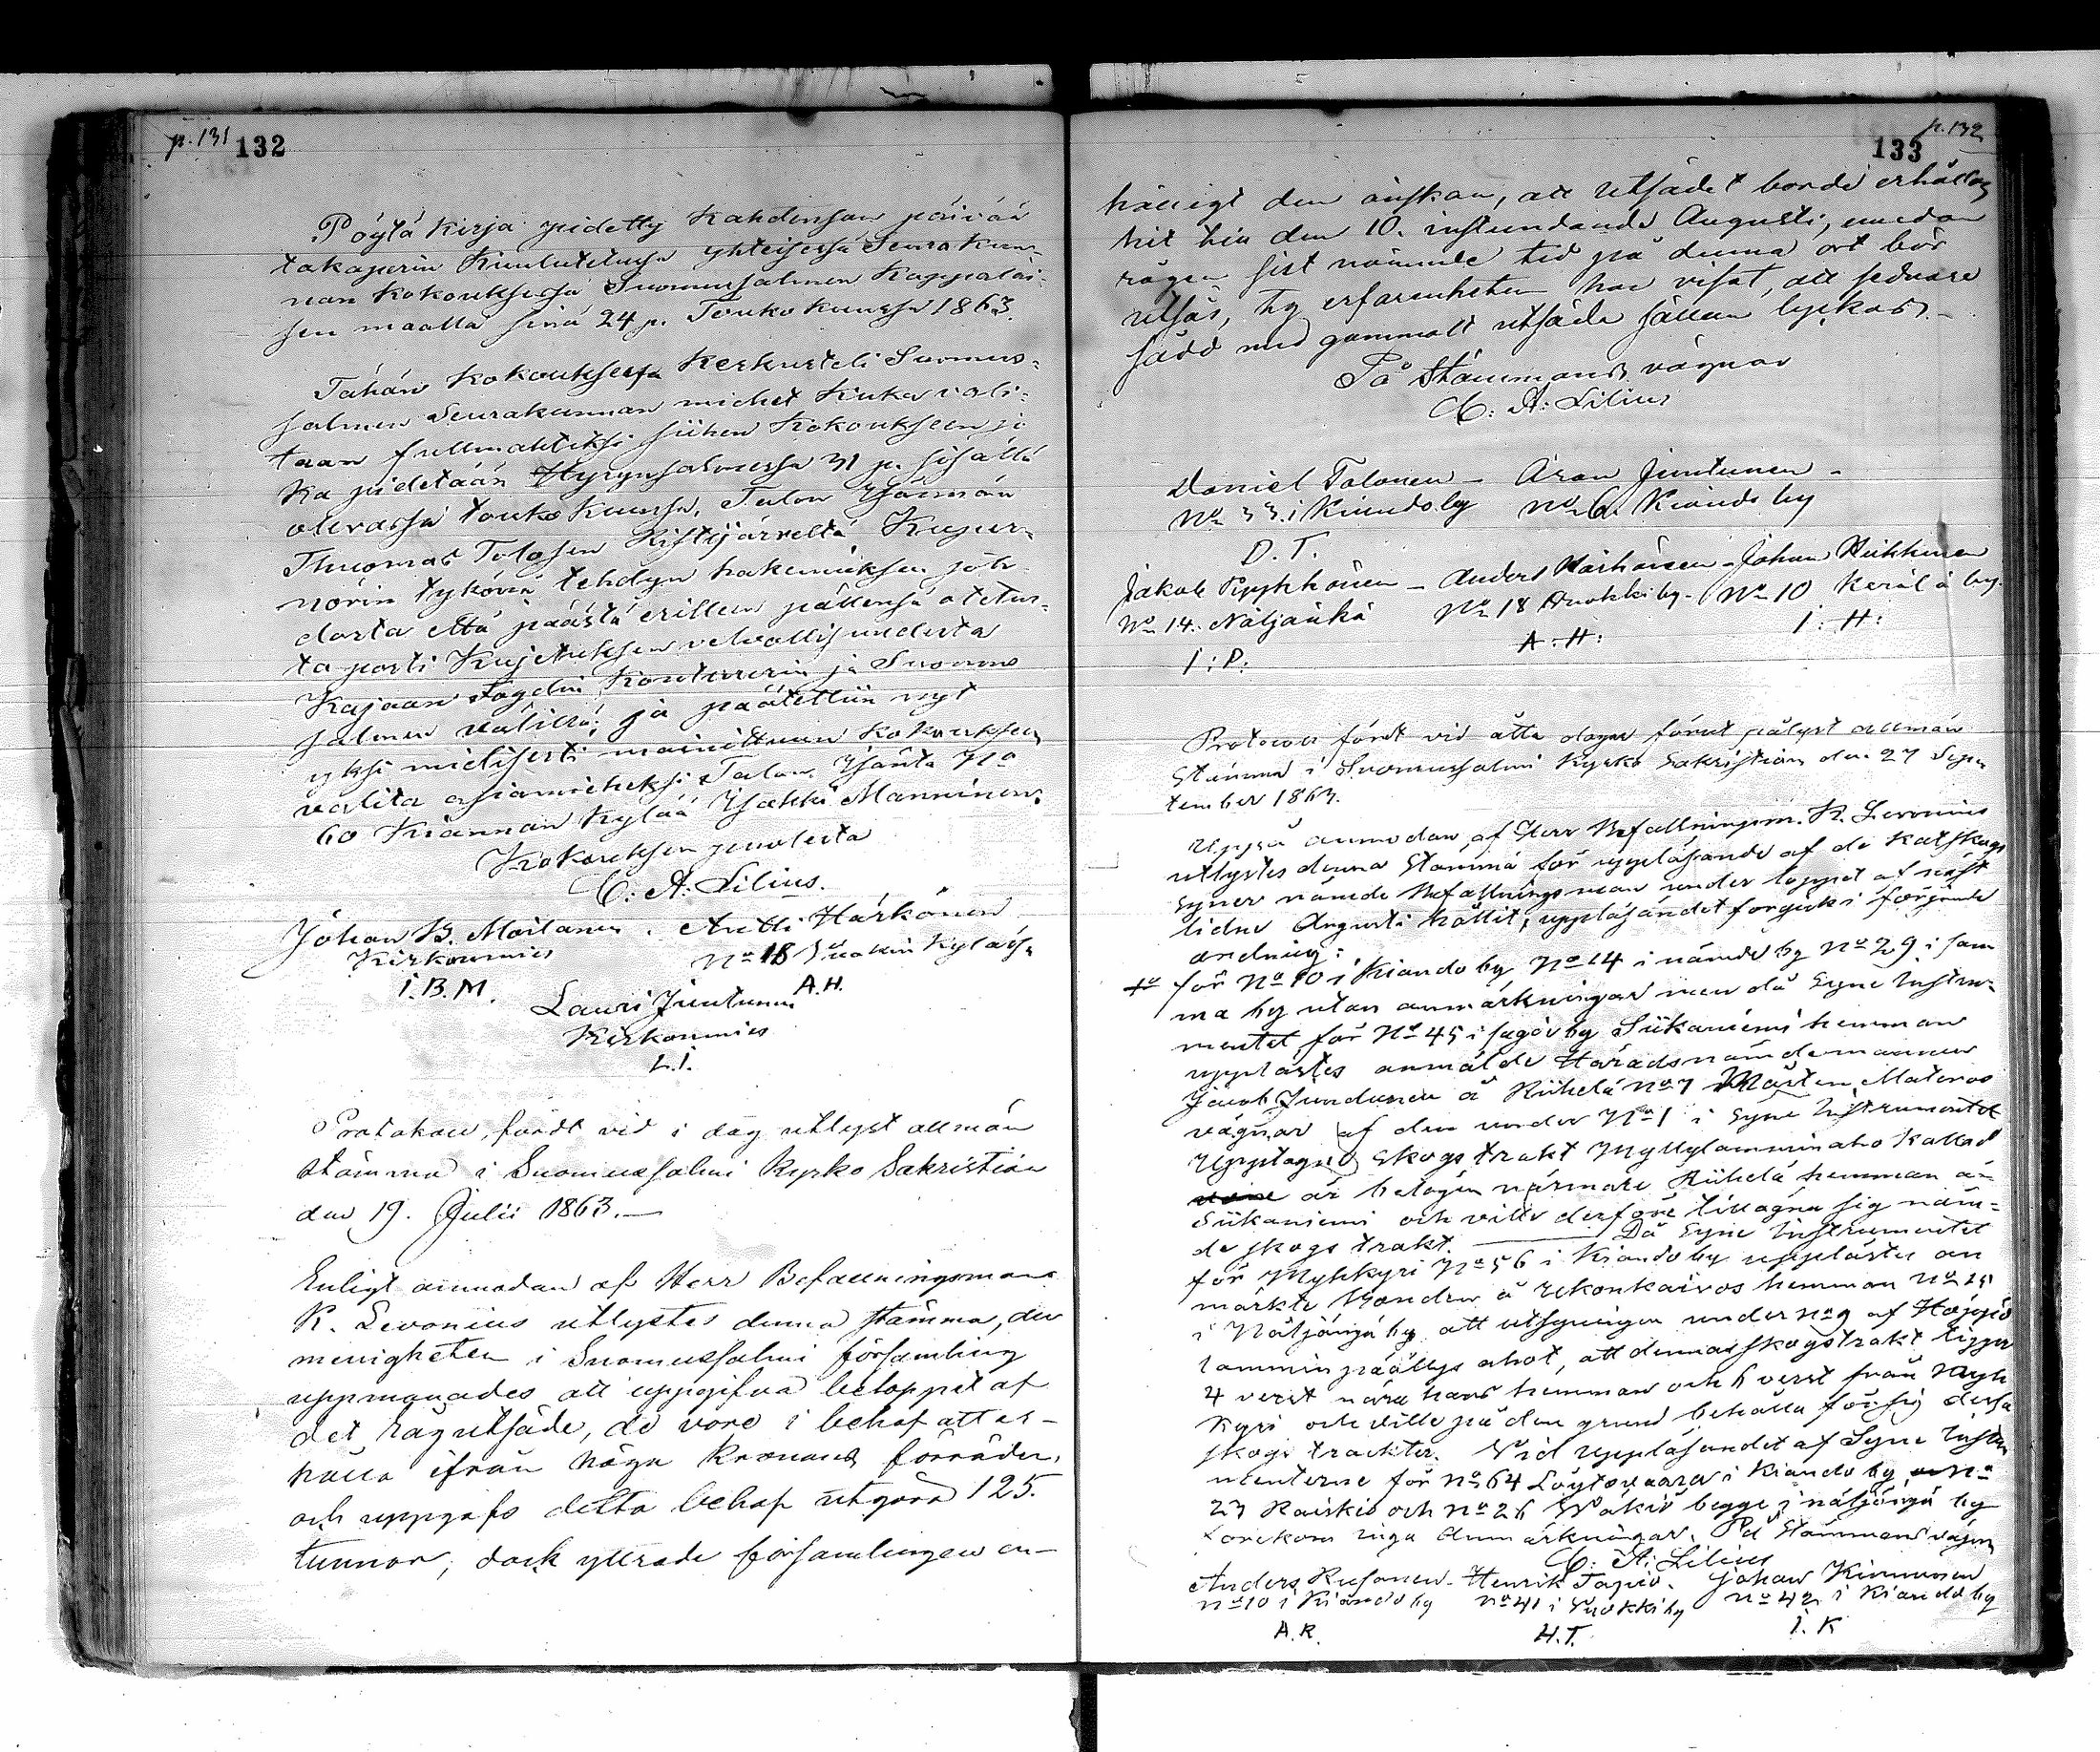 p. 131
132
Pöytä Kirja pidetty Kahdensan päivää
takaperin Kuulutetussa yhteisessä Seurakun-
nan Kokouksessa Suomussalmen Kappalai-
sen maalla sinä 24 p. Toukokuussa 1863.
Tähän Kokouksessa Keskusteli Suomus-
salmen Seurakunnan miehet Kuka vali-
taan fullmahtiksi siihen Kokoukseen jo
ka pidetään Hyrynsalmessa 31 p. sisällä
olevassa toukokuussa, Talon Isännän
Thuomas Tolosen Ristijärveltä Kuver-
nörin tykönä tehdyn hakemuksen joh-
dosta että päästä erillen päällensä otetus-
ta posti Kujetuksen velvollisuudesta
Kajaan stagdin Konttorin ja Suomus
salmen välillä; ja päätettiin nyt
yksi mielisesti mainittuun Kokoukseen
valita asiamieheksi Talon Isäntä No
60 Kiannan Kylää Isakki Manninen.
Kokouksen puolesta
C. A: Lilius.
Johan B. Moilanen. Antti Härkönen
Kirkonmies No 18 Kylässä
I. B. M. A. H.
Lauri Juntunen
Kirkonmies
L. I.
Protokoll, fördt vid i dag utlyst allmän
stämma i Suomussalmi Kyrko Sakristian
den 19. Julii 1863.—
Enligt anmodan af Herr Befallningsman
K. Levonius utlystes denna stämma, der
menigheten i Suomussalmi församling
uppmanades att uppgifva beloppet af
det rågutsäde, de vore i behof att er-
hålla ifrån höga Kronans förråder,
och uppgafs detta behof utgöra 125.
tunnor; dock yttrade församlingen en-
p. 132
133
hälligt den önskan, att utsädet borde erhållas
hit till den 10. instundande Augusti, emedan
rågen sist nämnde tid på denna ort bör
utsås, ty erfarenheten har visat, att sednare
sådd med gammalt utsäde sällan lyckas.—
På Stämmans vägnar
C: A: Lilius
Daniel Talonen — Aron Juntunen —
No 33. i Kiando by No 6. Kiando by
D. T.
Jakob Pyykkönen — Anders Härkönen — Johan Heikkinen
No 14. Näljänkä No 18 Ruokki by — No 10 Kerälä by.
I: P: A: H: I: H:
Protocoll fördt vid åtta dagar förut pålyst allmän
Stämma i Suomussalmi Kyrko Sakristian den 27 Sep
tember 1863.
Uppå anmodan af Herr Befallningsm. K. Levonius
utlystes denna Stämma för uppläsande af de
Syner nämde Befallningsman under loppet af sist
lidne Augusti hållit, uppläsandet forgick i följande
ordning:
för No 10 i Kiando by No 14 i nämde by No 29 i sam
ma by utan anmärkningar men då Syne Instru-
mentet för No 45 i by Siikaniemi hemman
upplästes anmälde Häradsnämdemannen
Jacob Jundunen å Riihelä No 7 Mårten Materos
vägnar af den under No 1 i Syne Instrumentet
Upptagne Skogs trakt Myllylamminaho Kallad
är belägen närmare Riihelä hemman än
Siikaniemi och ville derföre tillägna sig näm-
de skogs trakt. — Då Syne Instrumentet
för Myhkyri No 56 i Kiando by upplästes an
märkte Bonden å hemman No 25
i Näljängä by, att utsyningen under No 9 af
lammin päällys ahot, att denna skogstrakt ligger
4 verst nära hans hemman och 6 verst från Myh
kyri och ville på den grund behålla för sig dessa
skogs trackter. Vid uppläsandet af Syne Instru
menterne för No 64 Löytövaara i Kiando by No
23 Raiskio och No 26 begge i näljängä by
förekom inga Anmärkningar. På Stämmans vägnar
C: A: Lilius
Anders Kusonen — Henrik Tapio. Johan Kinnunen
No 10 i Kiando by No 41 i Ruokki by No 42 i Kiando by
A. K. H. T. I. K